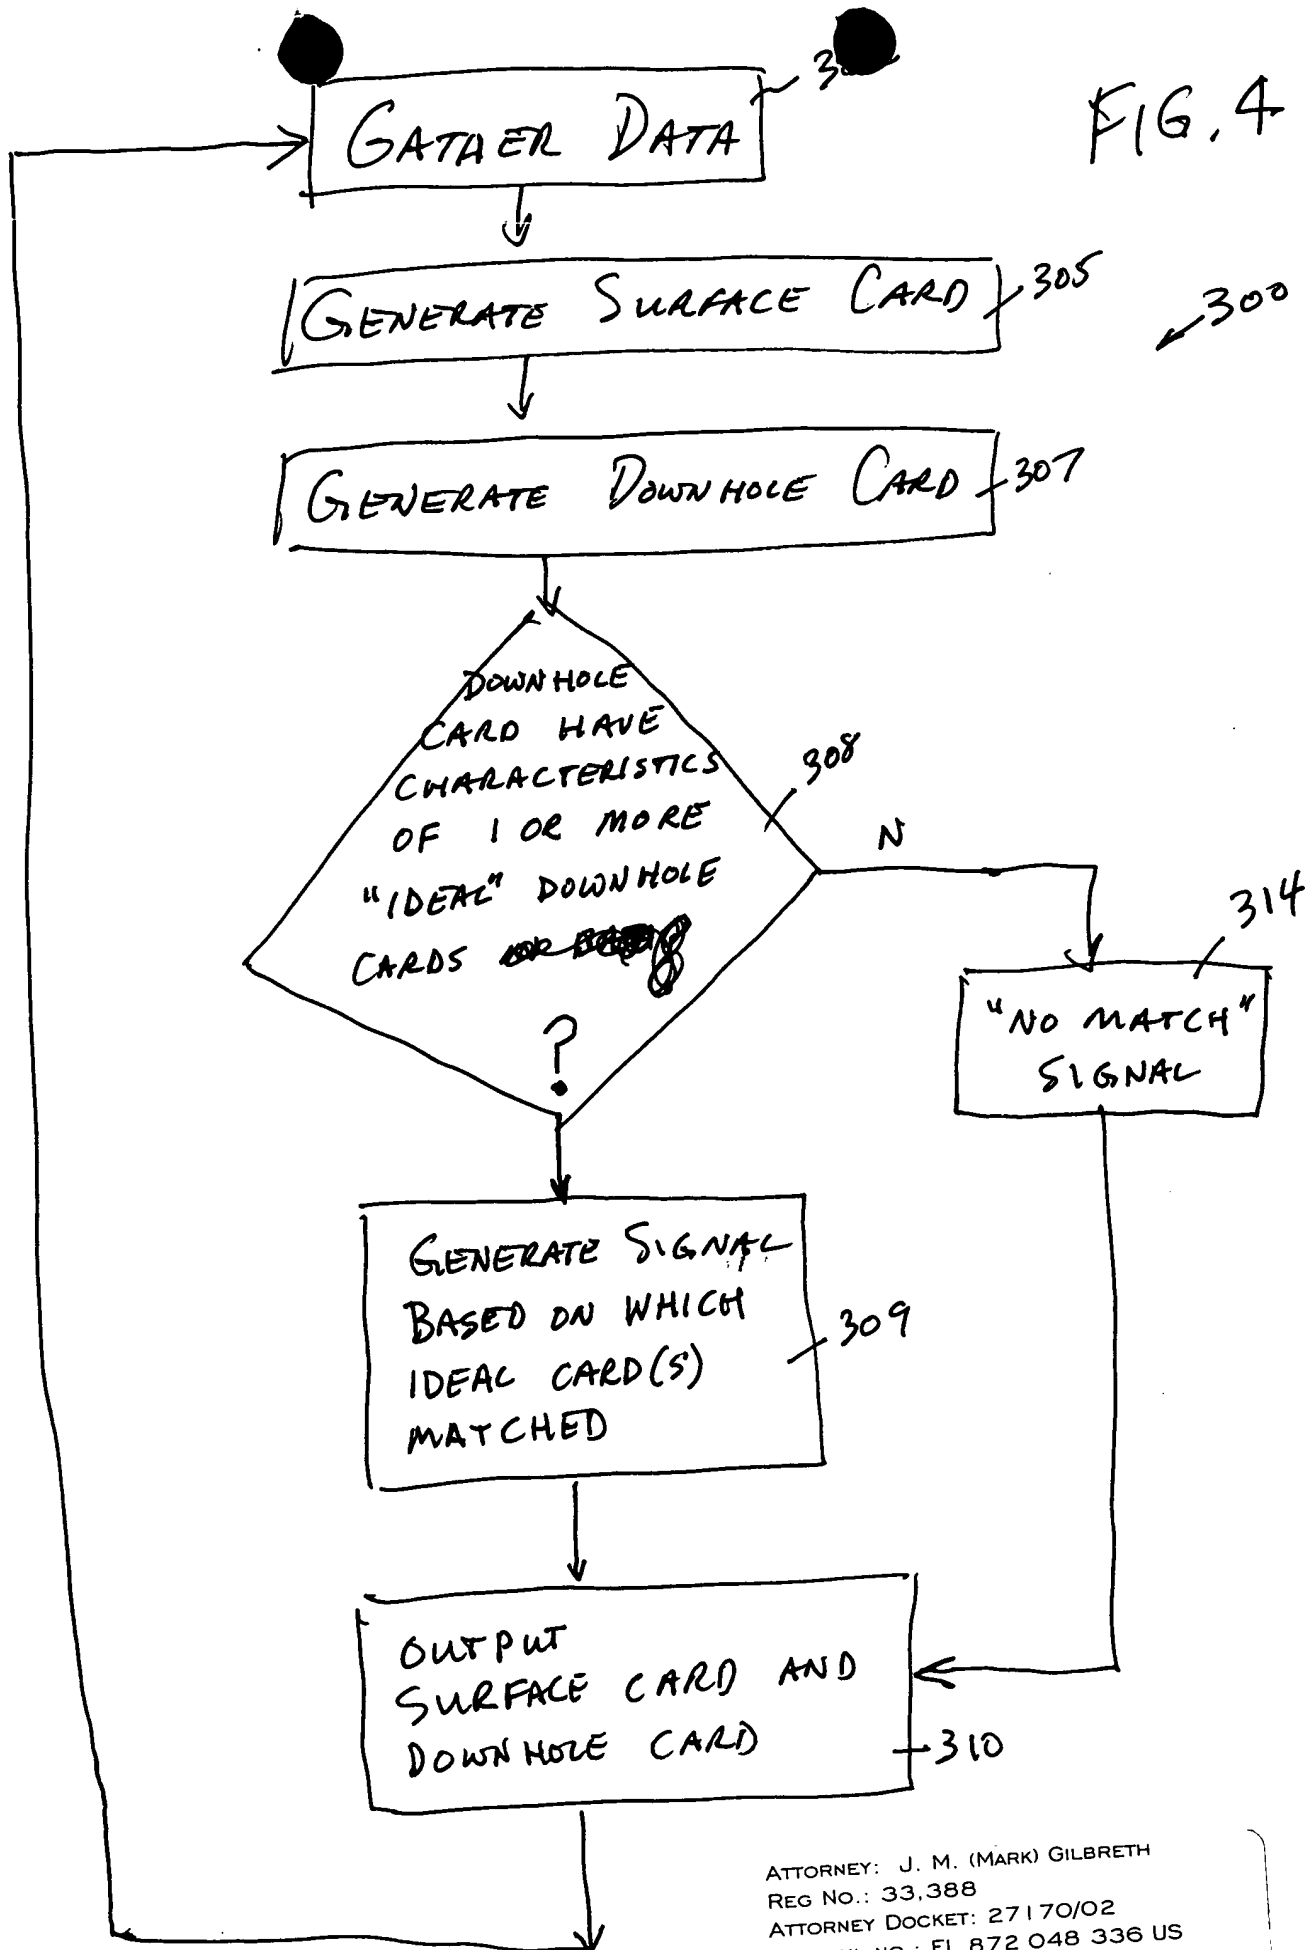 FIG. 4
GATHER DATA
GENERATE SURFACE CARD
305
300
GENERATE DOWNHOLE CARD
307
DOWNHOLE
CARD HAVE
CHARACTERISTICS
OF 1 OR MORE
"IDEAL" DOWNHOLE
CARDS
?
308
N
314
"NO MATCH"
SIGNAL
GENERATE SIGNAL
BASED ON WHICH
IDEAL CARD(S)
MATCHED
309
OUTPUT
SURFACE CARD AND
DOWNHOLE CARD
310
ATTORNEY: J. M. (MARK) GILBRETH
REG NO.: 33,388
ATTORNEY DOCKET: 27170/02
NO.: EL 872 048 336 US